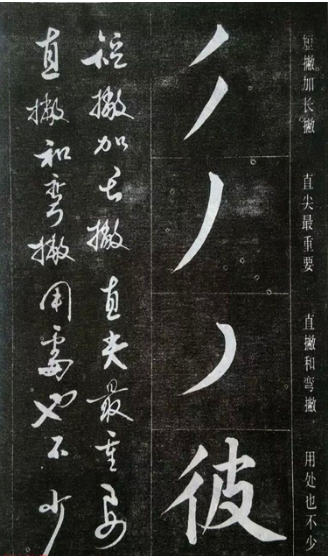 短撇加长撇 直尖最重要 直撇和弯撇 用处也不少
彼
短撇加长撇直尖最重要
直撇和弯撇用處也不少